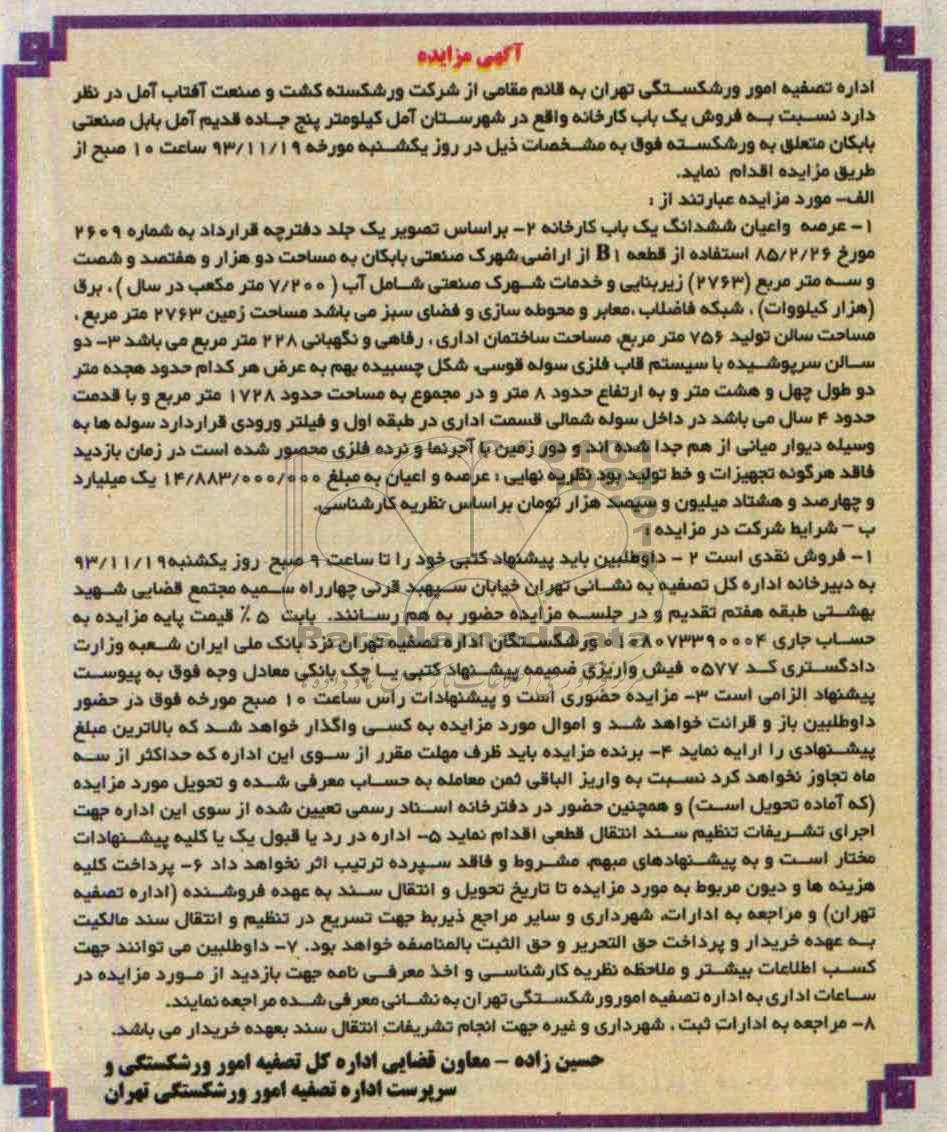 آگهی مزایده
اداره تصفیه امور ورشکستگی تهران به قائم مقامی از شرکت ورشکسته کشت و صنعت آفتاب آمل در نظر
دارد نسبت به فروش یک باب کارخانه واقع در شهرستان آمل کیلومتر پنج جاده قدیم آمل بابل صنعتی
بابکان متعلق به ورشکسته فوق به مشخصات ذیل در روز یکشنبه مورخه ۹۳/۱۱/۱۹ ساعت ۱۰ صبح از
طریق مزایده اقدام نماید.
الف- مورد مزایده عبارتند از :
۱- عرصه واعیان ششدانگ یک باب کارخانه ۲- براساس تصویر یک جلد دفترچه قرارداد به شماره ۲۶۰۹
مورخ ۸۵/۲/۲۶ استفاده از قطعه B۱ از اراضی شهرک صنعتی بابکان به مساحت دو هزار و هفتصد و شصت
و سه متر مربع (۲۷۶۳) زیربنایی و خدمات شهرک صنعتی شامل آب ( ۷/۲۰۰ متر مکعب در سال ) ، برق
(هزار کیلووات) ، شبکه فاضلاب ،معابر و محوطه سازی و فضای سبز می باشد مساحت زمین ۲۷۶۳ متر مربع ،
مساحت سالن تولید ۷۵۶ متر مربع، مساحت ساختمان اداری ، رفاهی و نگهبانی ۲۲۸ متر مربع می باشد ۳- دو
سالن سرپوشیده با سیستم قاب فلزی سوله قوسی شکل چسبیده بهم به عرض هر کدام حدود هجده متر
دو طول چهل و هشت متر و به ارتفاع حدود ۸ متر و در مجموع به مساحت حدود ۱۷۲۸ متر مربع و با قدمت
حدود ۴ سال می باشد در داخل سوله شمالی قسمت اداری در طبقه اول و فیلتر ورودی قراردارد سوله ها به
وسیله دیوار میانی از هم جدا شده اند و دور زمین با آجرنما و نرده فلزی محصور شده است در زمان بازدید
فاقد هرگونه تجهیزات و خط تولید بود نظریه نهایی : عرصه و اعیان به مبلغ ۱۴/۸۸۳/۰۰۰/۰۰۰ یک میلیارد
و چهارصد و هشتاد میلیون و سیصد هزار تومان براساس نظریه کارشناسی.
ب – شرایط شرکت در مزایده :
۱- فروش نقدی است ۲ - داوطلبین باید پیشنهاد کتبی خود را تا ساعت ۹ صبح روز یکشنبه۹۳/۱۱/۱۹
به دبیرخانه اداره کل تصفیه به نشانی تهران خیابان سپهبد قرنی چهارراه سمیه مجتمع قضایی شهید
بهشتی طبقه هفتم تقدیم و در جلسه مزایده حضور به هم رسانند. بابت ۵ ٪ قیمت پایه مزایده به
حساب جاری ۰۱۰۸۰۷۳۳۹۰۰۰۴ ورشکستگان اداره تصفیه تهران نزد بانک ملی ایران شعبه وزارت
دادگستری کد ۰۵۷۷ فیش واریزی ضمیمه پیشنهاد کتبی یا چک بانکی معادل وجه فوق به پیوست
پیشنهاد الزامی است ۳- مزایده حضوری است و پیشنهادات رأس ساعت ۱۰ صبح مورخه فوق در حضور
داوطلبین باز و قرائت خواهد شد و اموال مورد مزایده به کسی واگذار خواهد شد که بالاترین مبلغ
پیشنهادی را ارایه نماید ۴- برنده مزایده باید ظرف مهلت مقرر از سوی این اداره که حداکثر از سه
ماه تجاوز نخواهد کرد نسبت به واریز الباقی ثمن معامله به حساب معرفی شده و تحویل مورد مزایده
(که آماده تحویل است) و همچنین حضور در دفترخانه اسناد رسمی تعیین شده از سوی این اداره جهت
اجرای تشریفات تنظیم سند انتقال قطعی اقدام نماید ۵- اداره در رد یا قبول یک یا کلیه پیشنهادات
مختار است و به پیشنهادهای مبهم، مشروط و فاقد سپرده ترتیب اثر نخواهد داد ۶- پرداخت کلیه
هزینه ها و دیون مربوط به مورد مزایده تا تاریخ تحویل و انتقال سند به عهده فروشنده (اداره تصفیه
تهران) و مراجعه به ادارات، شهرداری و سایر مراجع ذیربط جهت تسریع در تنظیم و انتقال سند مالکیت
به عهده خریدار و پرداخت حق التحریر و حق الثبت بالمناصفه خواهد بود. ۷- داوطلبین می توانند جهت
کسب اطلاعات بیشتر و ملاحظه نظریه کارشناسی و اخذ معرفی نامه جهت بازدید از مورد مزایده در
ساعات اداری به اداره تصفیه امورورشکستگی تهران به نشانی معرفی شده مراجعه نمایند.
۸- مراجعه به ادارات ثبت ، شهرداری و غیره جهت انجام تشریفات انتقال سند بعهده خریدار می باشد.
حسین زاده - معاون قضایی اداره کل تصفیه امور ورشکستگی و
سرپرست اداره تصفیه امور ورشکستگی تهران